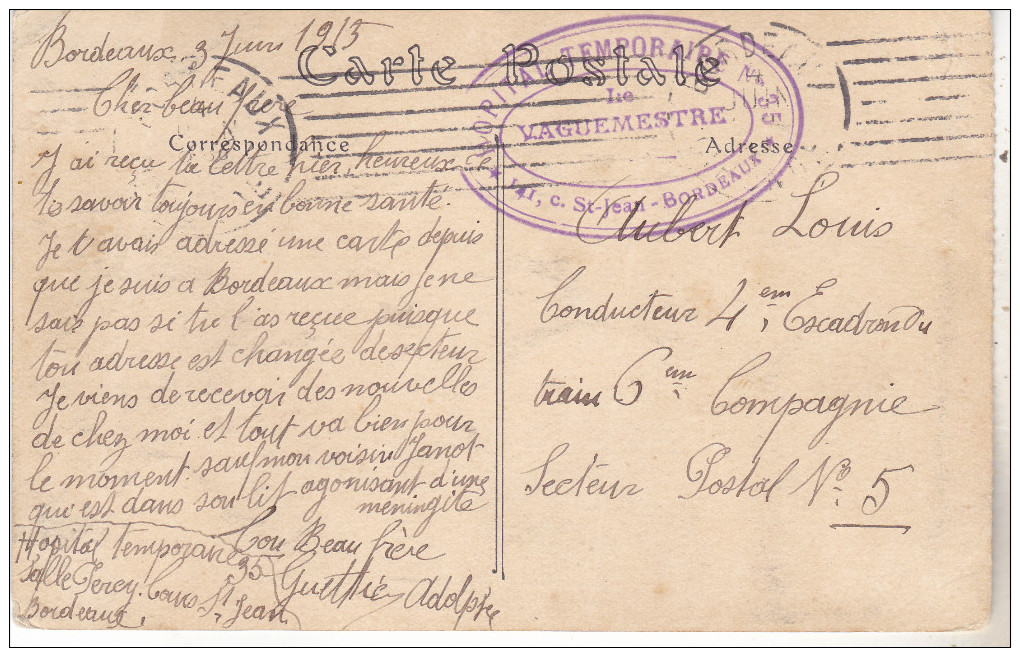 Bordeaux 3 Juin 1915
Carte Postale
HOPITAL TEMPORAIRE N° 35
Le
VAGUEMESTRE
141, c. St-Jean - BORDEAUX
Cher beau frère
Correspondance
Adresse
J ai reçu ta lettre hier, heureux de
te savoir toujours en bonne santé.
Je t avais adressé une carte depuis
que je suis a Bordeaux mais je ne
sais pas si tu l'as reçue puisque
ton adresse est changée de secteur
Je viens de recevoir des nouvelles
de chez moi et tout va bien pour
le moment sauf mon voisin Janot
qui est dans son lit agonisant d'une
meningite
Ton Beau frère
Adolphe
Hopital temporaire
35
Salle Cours St Jean
Bordeaux.
Aubert Louis
Conducteur 4em Escadron du
train 6em Compagnie
Secteur Postal No 5